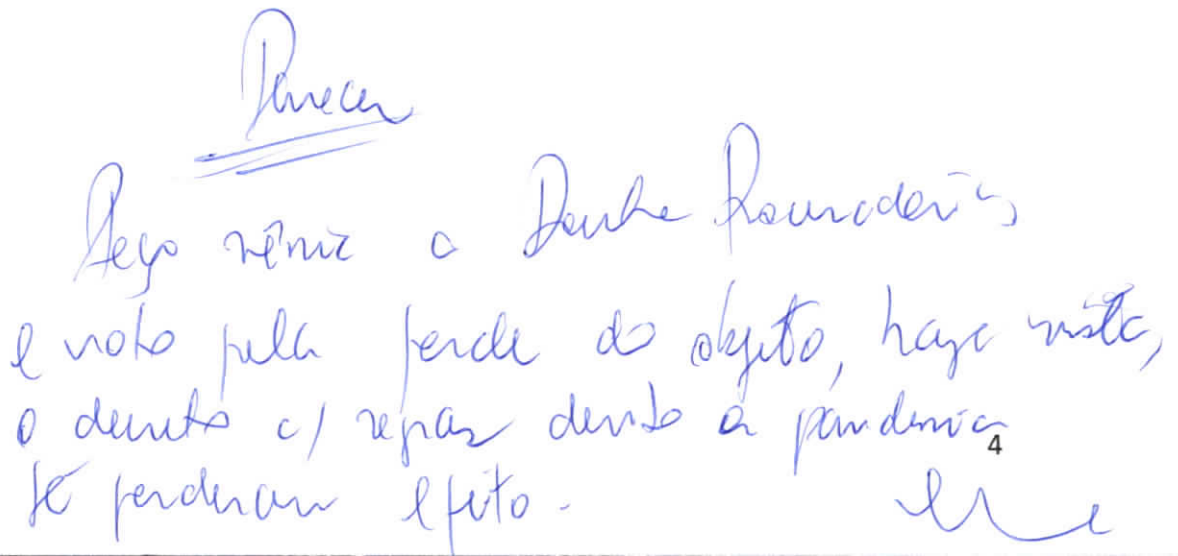 Parecer
Peço vênia a Douta Procuradoria
e voto pela perda do objeto, haja vista,
o decreto c/ regras devido a pandemia
já perderam efeito.
4